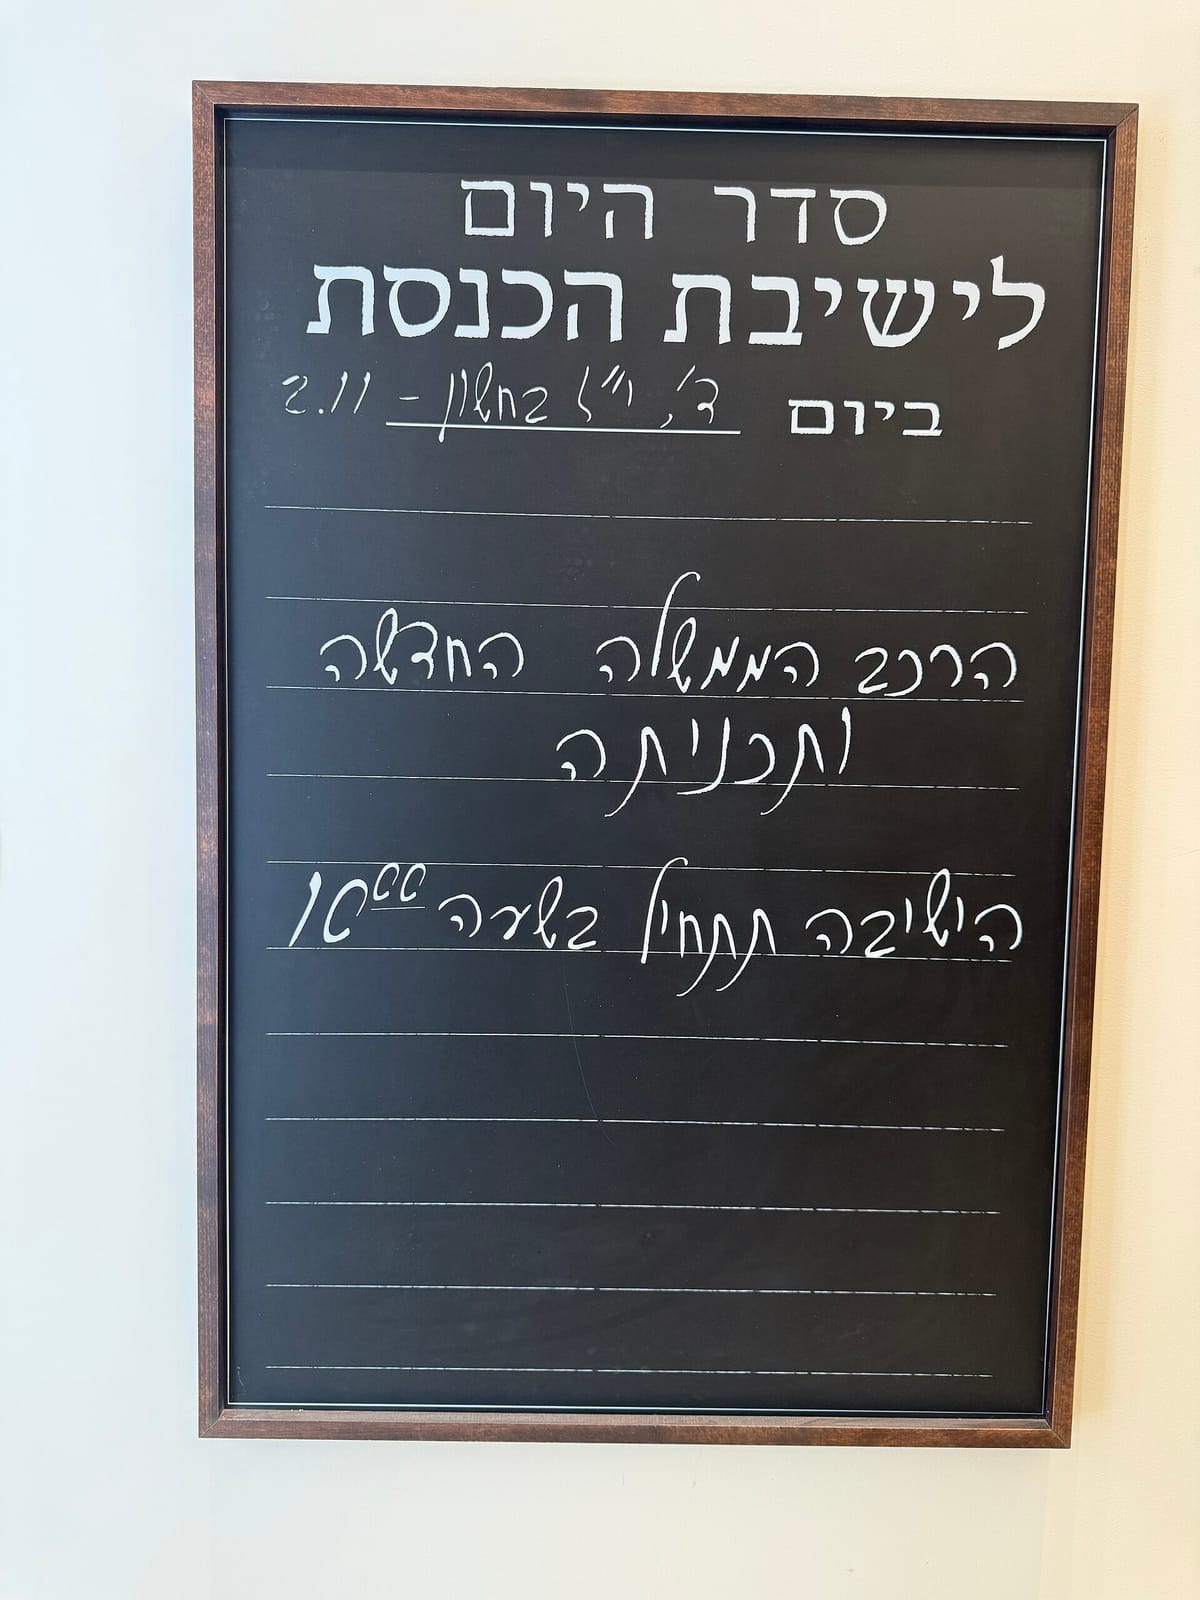 סדר היום
לישיבת הכנסת
ביום ד', י"ז בחשון - 2.11
הרכב הממשלה החדשה
ותכניתה
הישיבה תתחיל בשעה 10⁰⁰